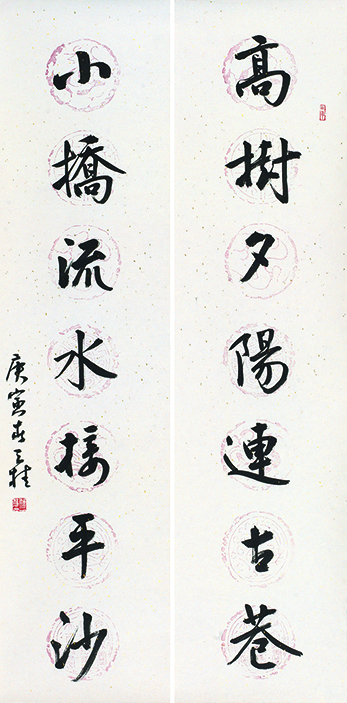 高樹夕陽連古巷
小橋流水接平沙
庚寅春